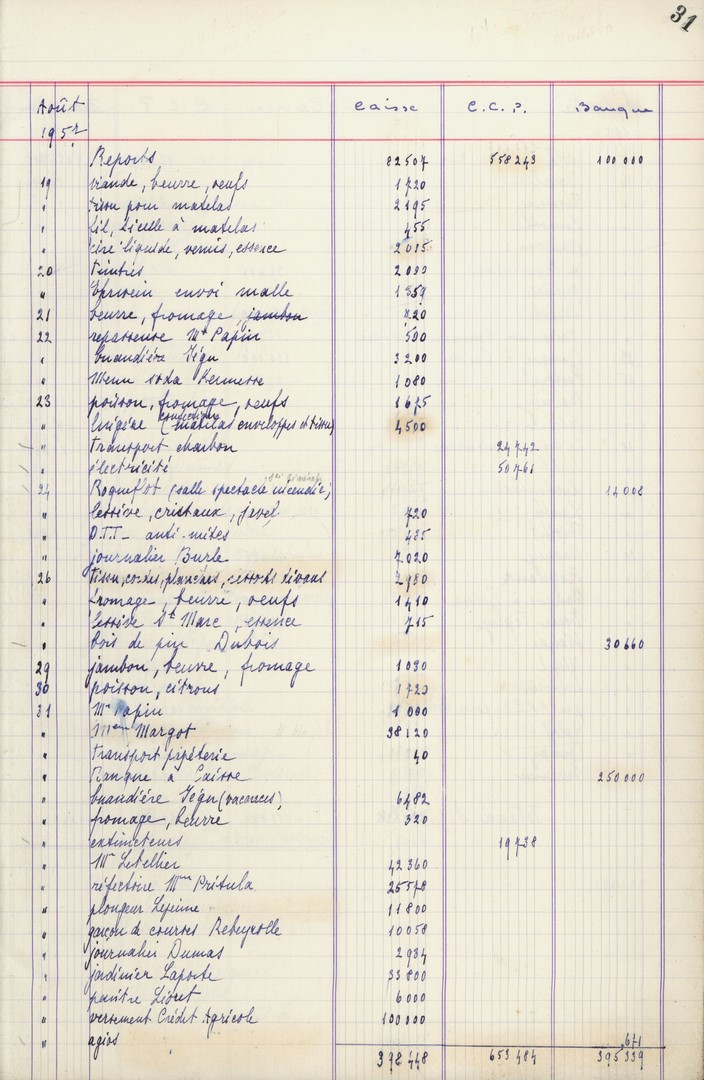 31
Août Caisse C.C.P. Banque
195
Reports 82507 558243 100000
19 viande, beurre, oeufs 1720
" tissu pour matelas 2195
" fil, ficelle à matelas 455
" cire liquide, vernis, essence 2015
20 timbres 2000
" envoi malle 1359
21 beurre, fromage, jambon 720
22 repasseuse Mme Papin 500
" buandière Jégu 3200
" Menu soda Kermesse 1080
23 poisson, fromage, oeufs 1675
" lingère (confection matelas enveloppes et tissu) 4500
" transport charbon 24742
" électricité 50761
24 Roqueflot (salle spectacle incendie) 14008
" lessive, cristaux, javel 720
" D.T.T - anti-mites 435
" journalier Burle 7020
26 tissu, cordes, planches, ressorts divans 2980
" fromage, beurre, oeufs 1410
" lessive St Marc, essence 715
" bois de pin Dubois 30660
29 jambon, beurre, fromage 1030
30 poisson, citrons 1720
31 Mr Papin 1000
" Mme Margot 38120
" transport papéterie 40
" Banque à Caisse 250000
" buandière Jégu (vacances) 6482
" fromage, beurre 320
" extincteurs 19738
" Mr Letellier 42360
" réfectoire Mme Pritula 25578
" plongeur Lejeune 11800
" garçon de courses Rebeyrolle 10058
" journalier Dumas 2934
" jardinier Laporte 33800
" peintre Lioret 6000
" versement Crédit Agricole 100000
" agios 671
398448 653484 395339